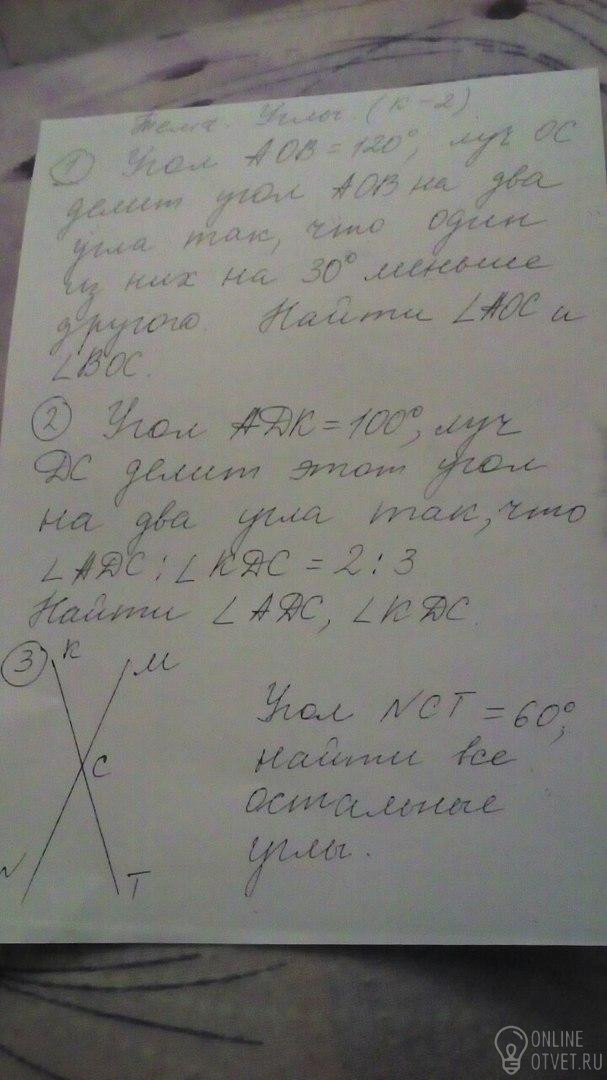 Тема. Углы. (К-2)
① Угол АОВ = 120°, луч ОС
делит угол АОВ на два
угла так, что один
из них на 30° меньше
другого. Найти ∠АОС и
∠ВОС.
② Угол АДК = 100°, луч
ДС делит этот угол
на два угла так, что
∠АДС : ∠КДС = 2 : 3
Найти ∠АДС, ∠КДС.
③ К М
С
N Т
Угол NСТ = 60°,
найти все
остальные
углы.
ONLINE
OTVET.RU